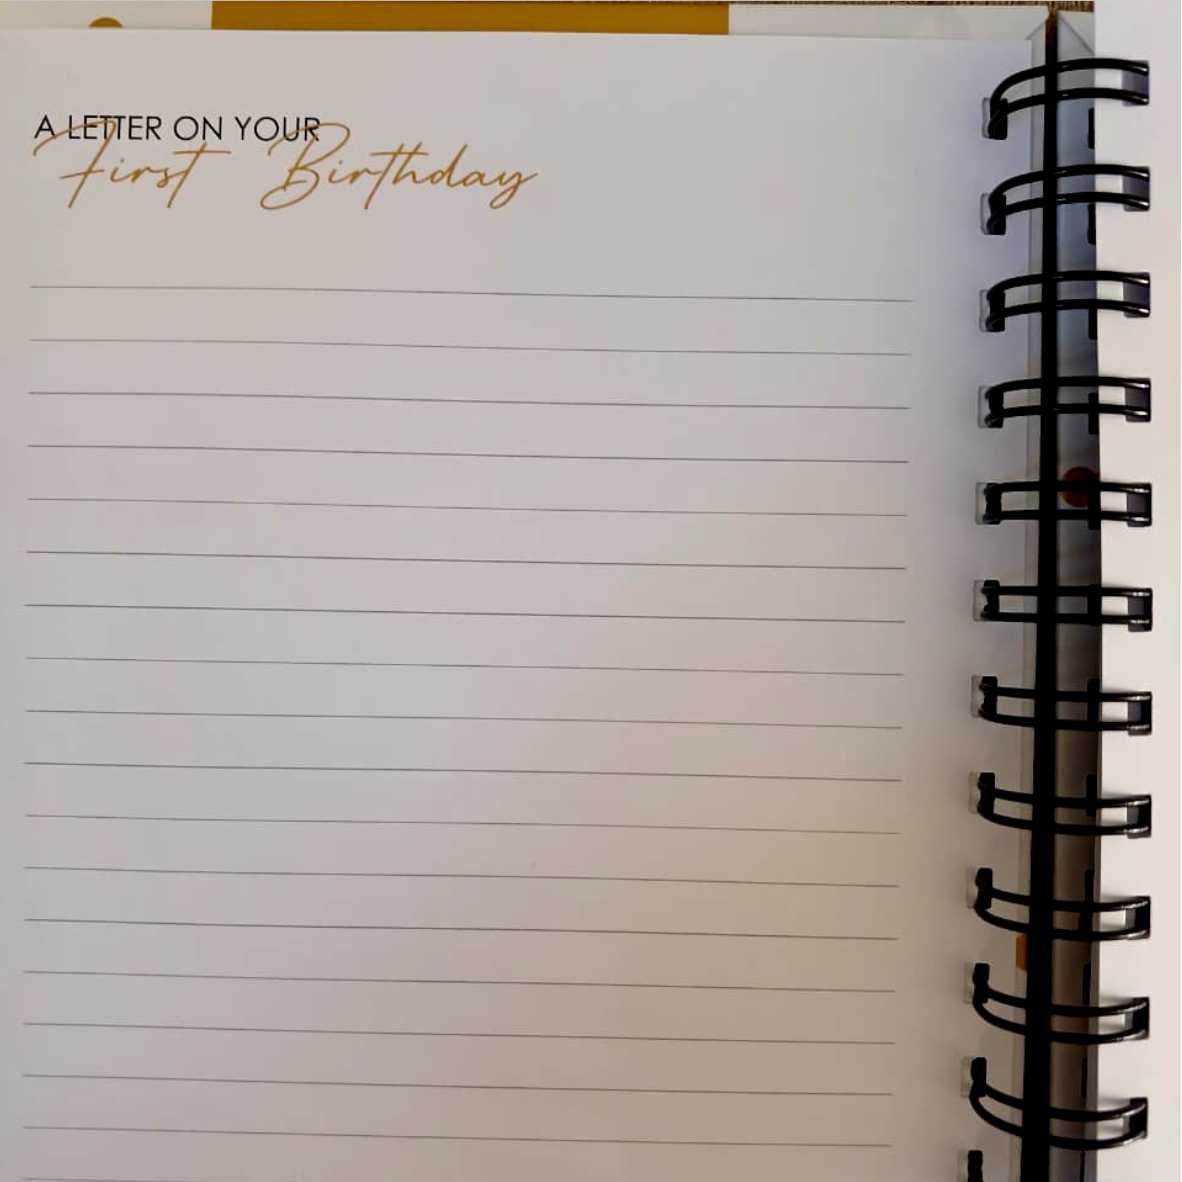 A LETTER ON YOUR
First Birthday